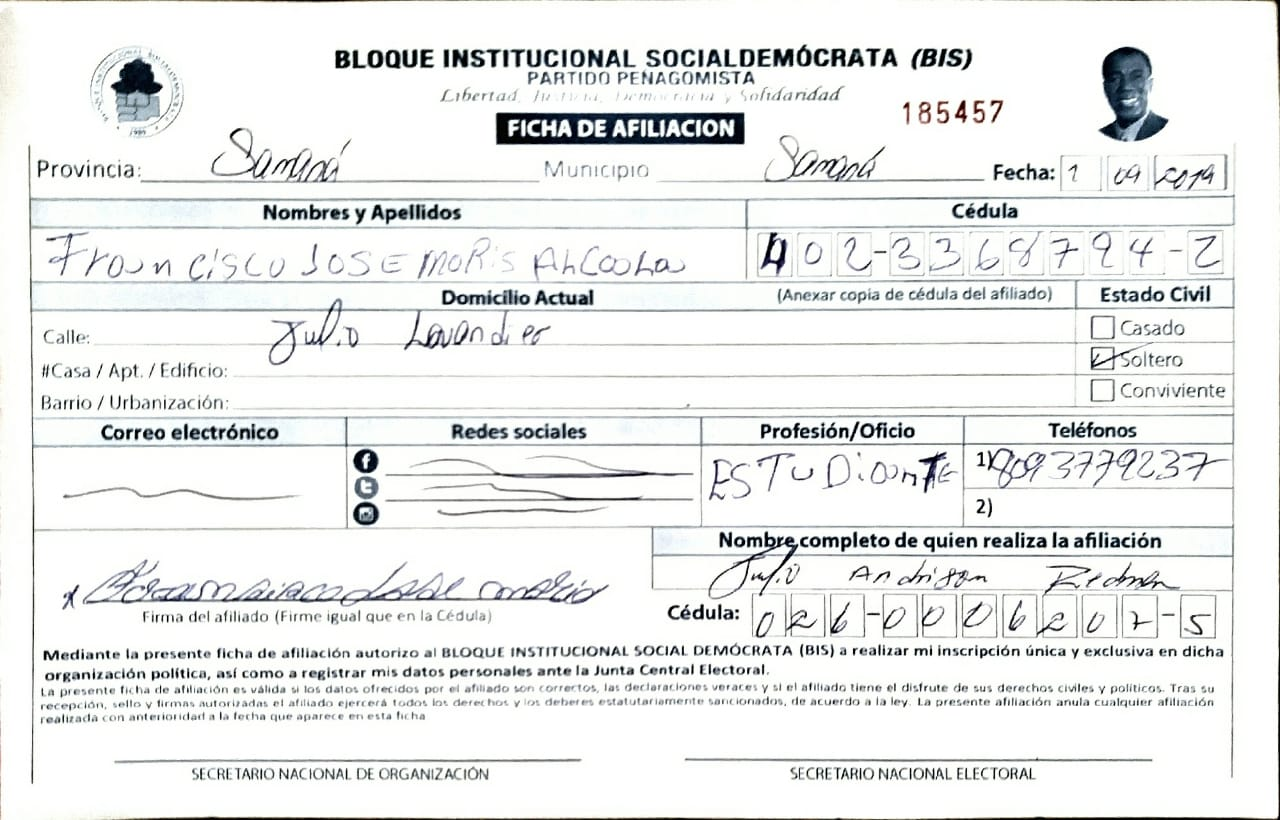 BLOQUE INSTITUCIONAL SOCIALDEMÓCRATA (BIS)
PARTIDO PEÑAGOMISTA
Libertad, Justicia, Democracia y Solidaridad
185457
FICHA DE AFILIACION
Provincia: Samaná Municipio Samaná Fecha: 1 09 2019
Nombres y Apellidos Cédula
Francisco JOSE MORIS 402-3368794-2
Domicilio Actual (Anexar copia de cédula del afiliado) Estado Civil
Calle: Julio Lavandier
Casado
#Casa / Apt. / Edificio: Soltero
Barrio / Urbanización: Conviviente
Correo electrónico Redes sociales Profesión/Oficio Teléfonos
ESTUDiante 1) 8093779237
2)
Nombre completo de quien realiza la afiliación
Julio Andrison Redman
Firma del afiliado (Firme igual que en la Cédula) Cédula: 026-0006207-5
Mediante la presente ficha de afiliación autorizo al BLOQUE INSTITUCIONAL SOCIAL DEMÓCRATA (BIS) a realizar mi inscripción única y exclusiva en dicha
organización política, así como a registrar mis datos personales ante la Junta Central Electoral.
La presente ficha de afiliación es válida si los datos ofrecidos por el afiliado son correctos, las declaraciones veraces y si el afiliado tiene el disfrute de sus derechos civiles y políticos. Tras su
recepción, sello y firmas autorizadas el afiliado ejercerá todos los derechos y los deberes estatutariamente sancionados, de acuerdo a la ley. La presente afiliación anula cualquier afiliación
realizada con anterioridad a la fecha que aparece en esta ficha
SECRETARIO NACIONAL DE ORGANIZACIÓN SECRETARIO NACIONAL ELECTORAL